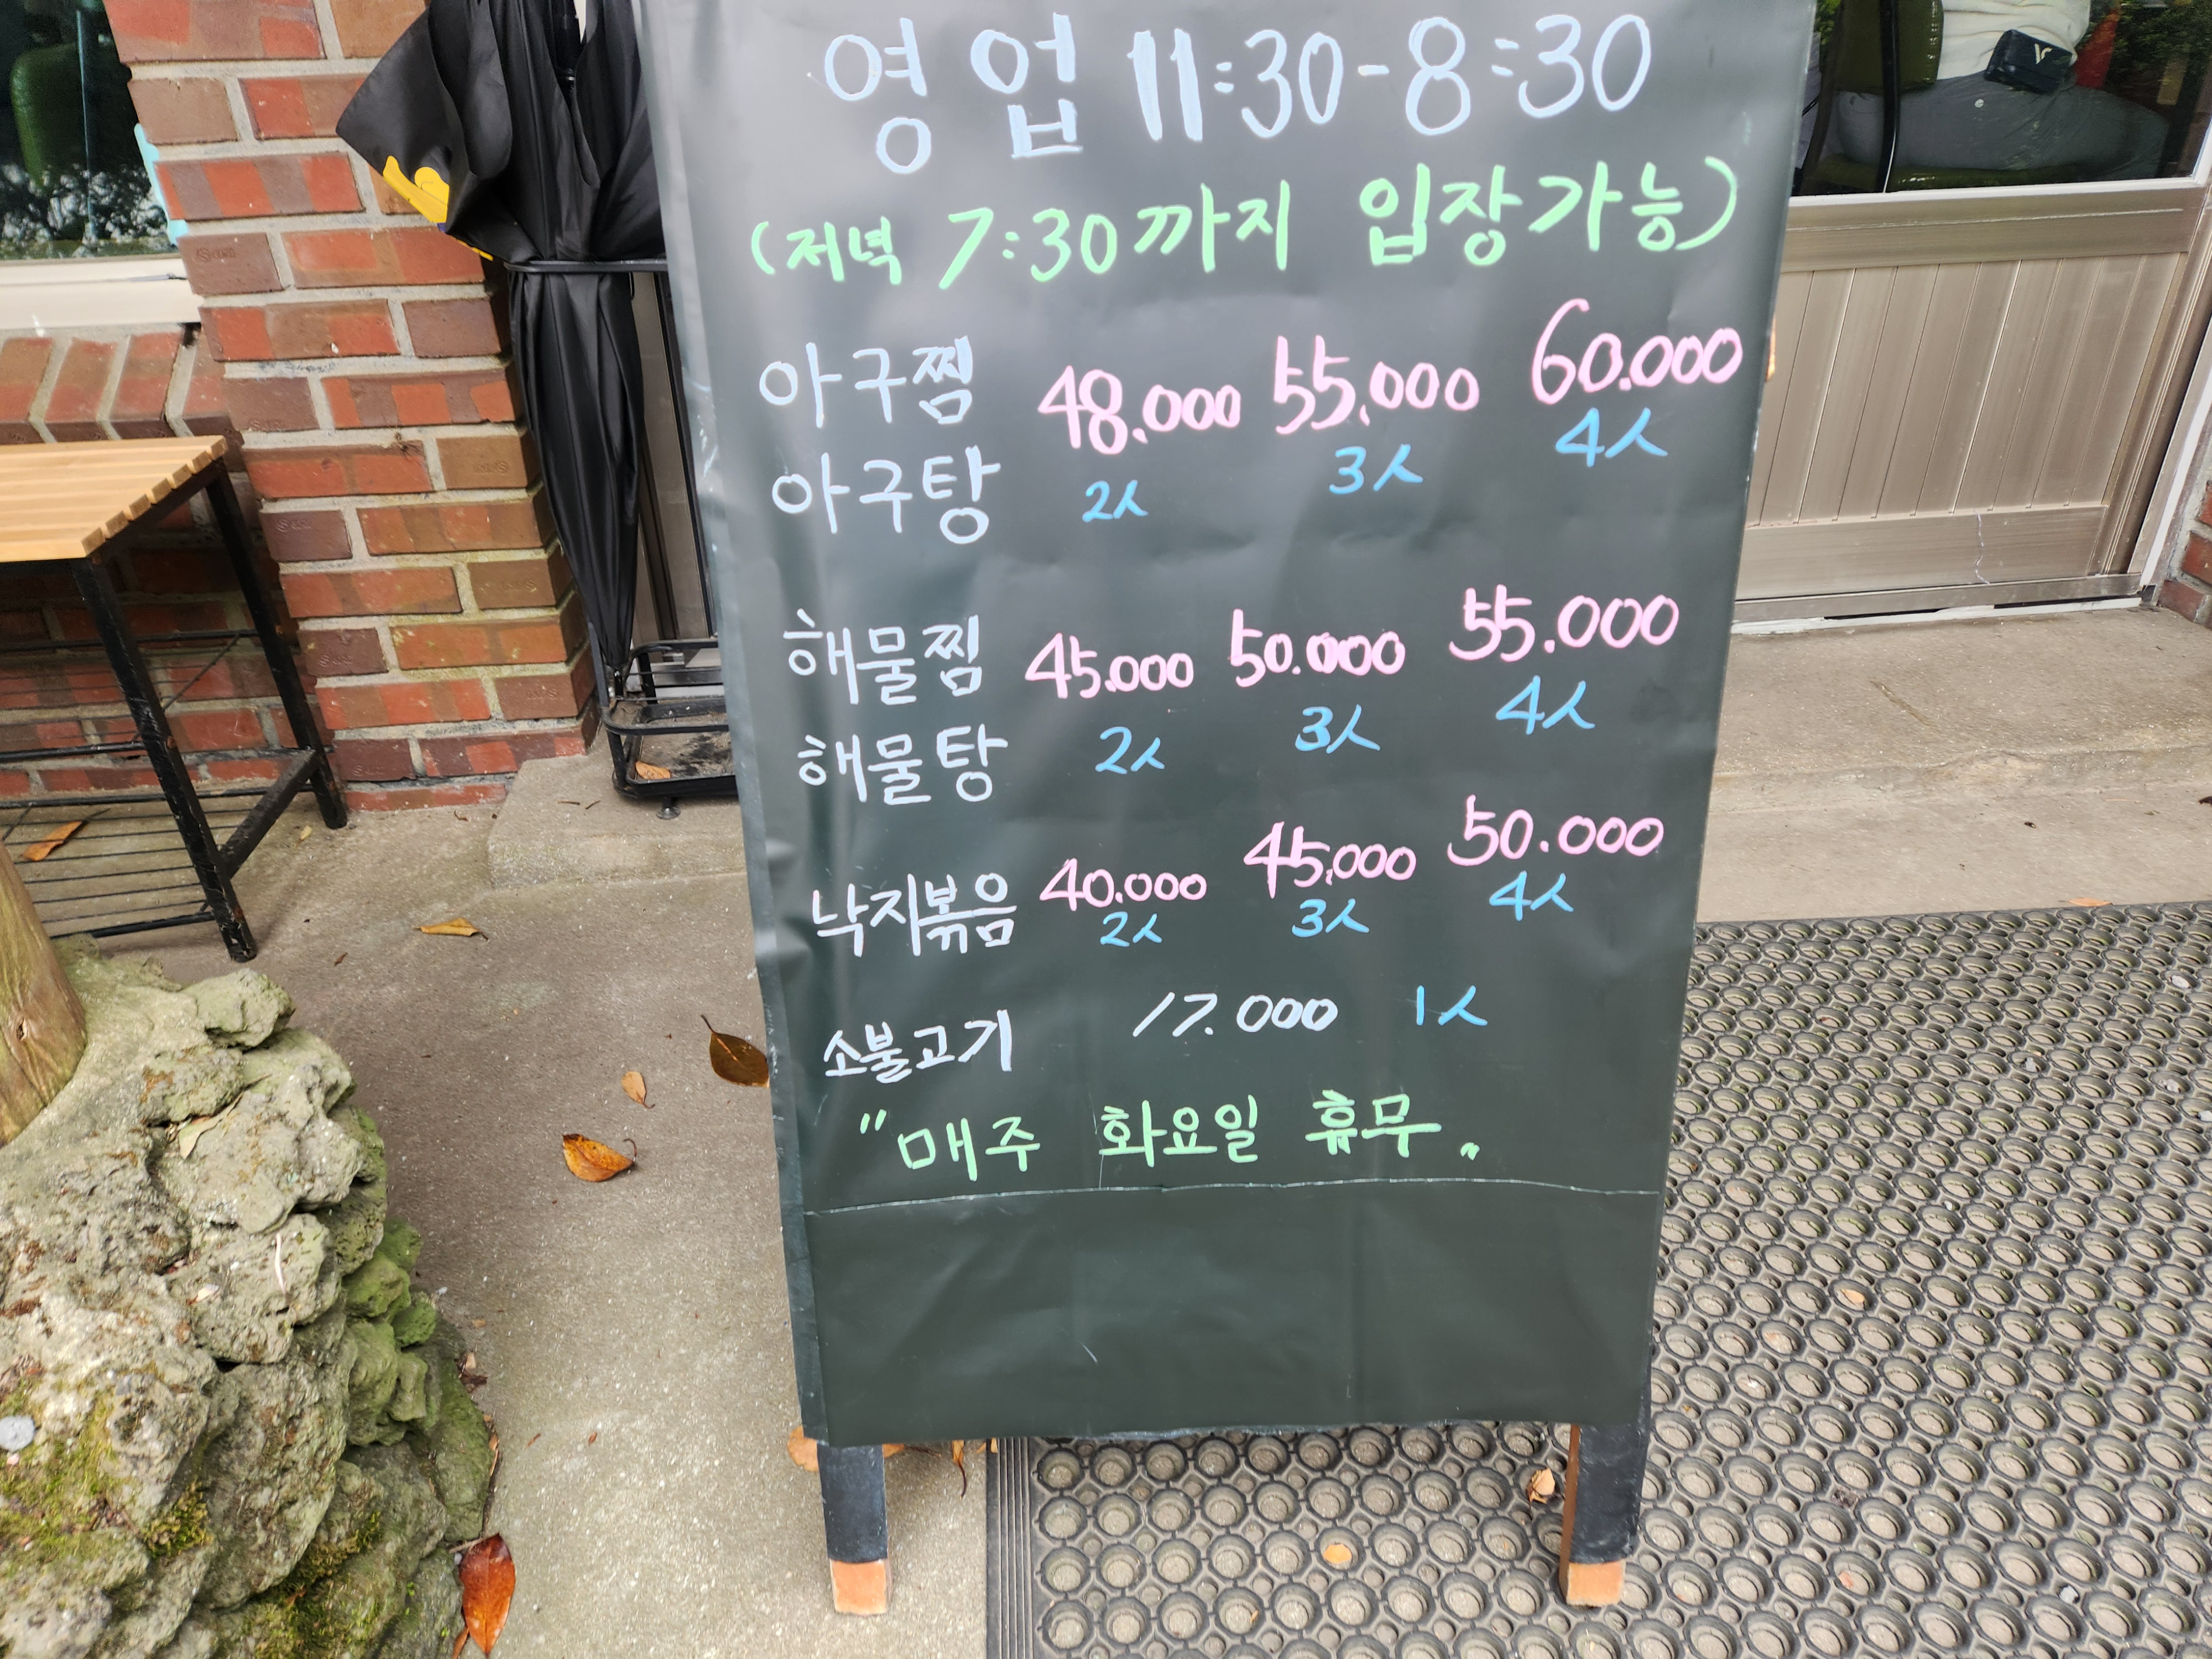 영업 11:30-8:30
(저녁 7:30까지 입장가능)
아구찜 48.000 55.000 60.000
아구탕 2人 3人 4人
해물찜 45.000 50.000 55.000
해물탕 2人 3人 4人
낙지볶음 40.000 45.000 50.000
2人 3人 4人
소불고기 17.000 1人
"매주 화요일 휴무"